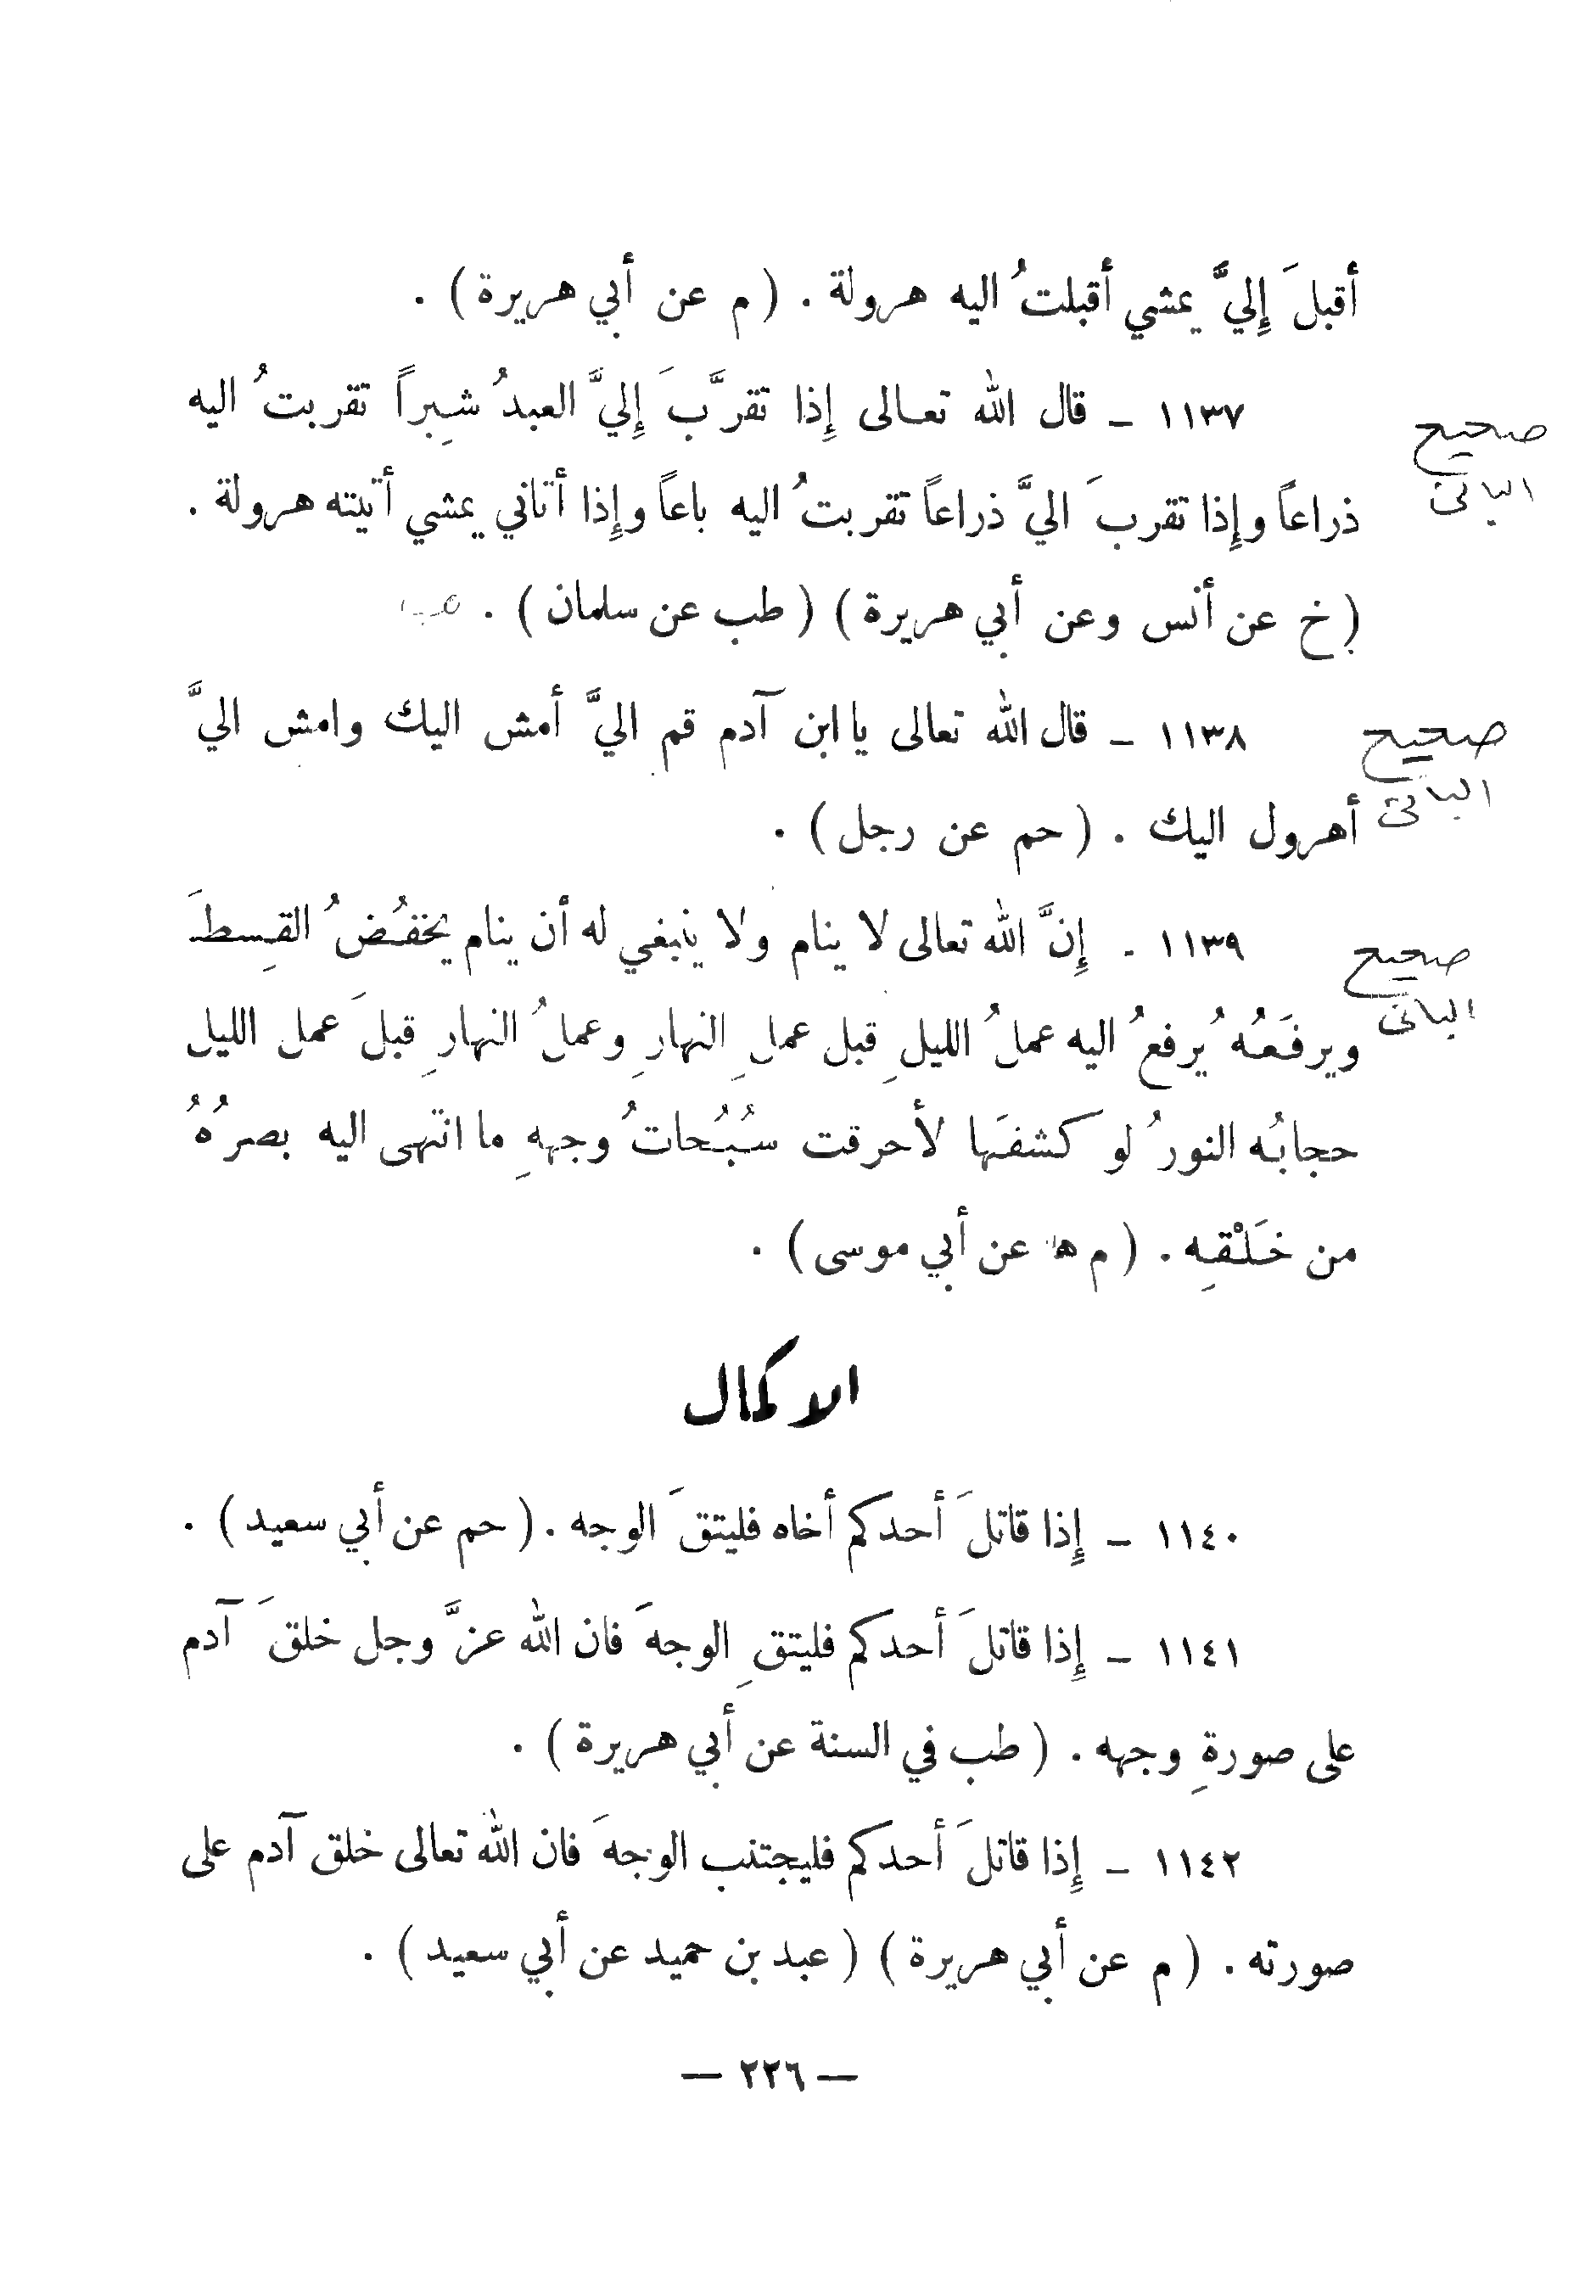 أقبلَ إِليَّ يمشي أقبلتُ اليه هرولة . ( م عن أبي هريرة ) .
١١٣٧ ـ قال الله تعـالى إِذا تقرَّبَ إِليَّ العبدُ شـِبراً تقربتُ اليه
صحيح
ذراعاً وإِذا تقربَ اليَّ ذراعاً تقربتُ اليه باعاً وإِذا أتاني يمشي أتيته هرولة .
البانى
( خ عن أنس وعن أبي هريرة ) ( طب عن سلمان ) .
١١٣٨ ـ قال الله تعالى يا ابن آدم قم اليَّ أمش اليك وامش اليَّ
صحيح
أهرول اليك . ( حم عن رجل ) .
البانى
١١٣٩ ـ إِنَّ الله تعالى لا ينام ولا ينبغي له أن ينام يخفـُضُ القـِسطـَ
صحيح
ويرفـَعـُه يُرفعُ اليه عملُ الليلِ قبل عملِ النهارِ وعملُ النهارِ قبلَ عمل الليل
البانى
حجابـُه النورُ لو كشفـَها لأحرقت سـُبـُحاتُ وجههِ ما انتهى اليه بصرُهُ
من خـَلـْقـِه . ( م ه عن أبي موسى ) .
الاكمال
١١٤٠ ـ إِذا قاتلَ أحدكم أخاه فليتقَ الوجه . ( حم عن أبي سعيد ) .
١١٤١ ـ إِذا قاتلَ أحدكم فليتقِ الوجهَ فان الله عزَّ وجل خلقَ آدم
على صورةِ وجهه . ( طب في السنة عن أبي هريرة ) .
١١٤٢ ـ إِذا قاتلَ أحدكم فليجتنب الوجهَ فان الله تعالى خلق آدم على
صورته . ( م عن أبي هريرة ) ( عبد بن حميد عن أبي سعيد ) .
— ٢٢٦ —